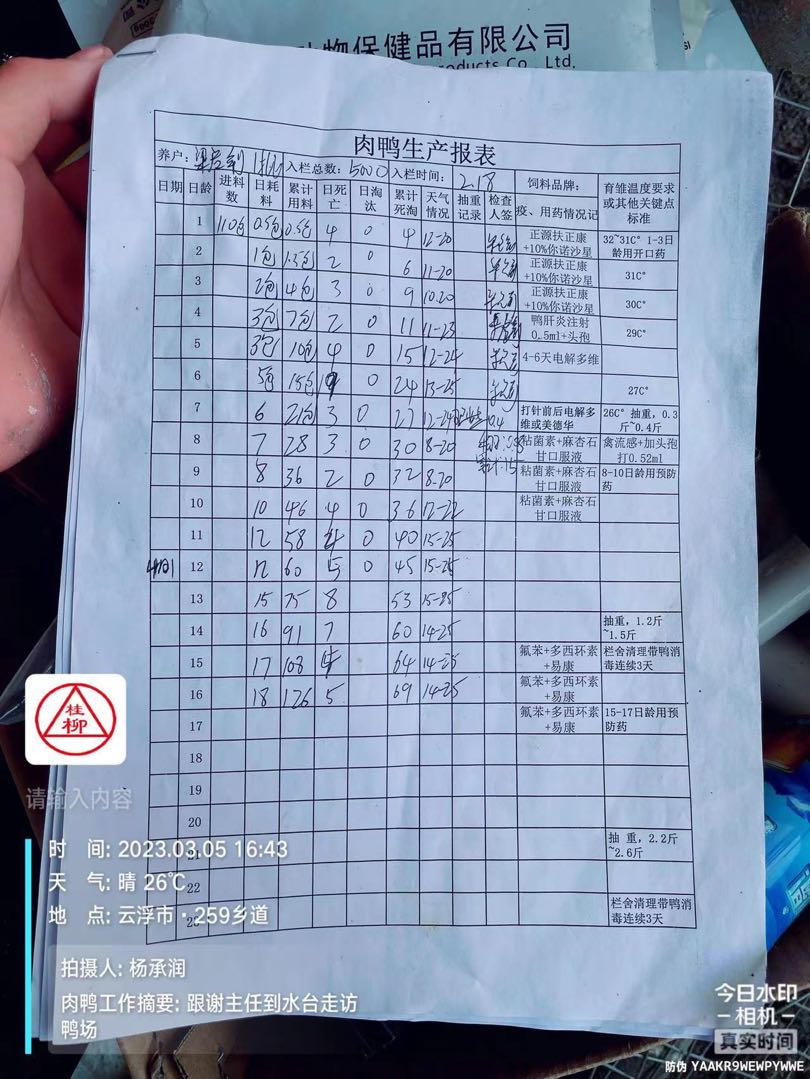 动物保健品有限公司
oducts Co., Ltd.
肉鸭生产报表
养户: 入栏总数: 5000 入栏时间: 2.18 饲料品牌: 育雏温度要求或其他关键点标准
日期 日龄 进料数 日耗料 累计用料 日死亡 日淘汰 累计死淘 天气情况 抽重记录 检查人签 疫、用药情况记
1 110包 0.5包 0.5包 4 0 4 12-20 正源扶正康+10%你诺沙星 32~31C° 1-3日龄用开口药
2 1包 1.5包 2 0 6 11-20 正源扶正康+10%你诺沙星 31C°
3 2包 4包 3 0 9 10-20 正源扶正康+10%你诺沙星 30C°
4 3包 7包 2 0 11 11-23 鸭肝炎注射0.5ml+头孢 29C°
5 3包 10包 4 0 15 12-24 4-6天电解多维
6 5包 15包 9 0 24 13-25 27C°
7 6 21包 3 0 27 12-24 0.4 打针前后电解多维或美德华 26C° 抽重，0.3斤~0.4斤
8 7 28 3 0 30 8-20 粘菌素+麻杏石甘口服液 禽流感+加头孢打0.52ml
9 8 36 2 0 32 8-20 粘菌素+麻杏石甘口服液 8-10日龄用预防药
10 10 46 4 0 36 12-22 粘菌素+麻杏石甘口服液
11 12 58 4 0 40 15-25
12 12 60 5 0 45 15-25
13 15 75 8 53 15-25
14 16 91 7 60 14-25 抽重，1.2斤~1.5斤
15 17 108 4 64 14-25 氟苯+多西环素+易康 栏舍清理带鸭消毒连续3天
16 18 126 5 69 14-25 氟苯+多西环素+易康
17 氟苯+多西环素+易康 15-17日龄用预防药
18
19
20
21 抽 重，2.2斤~2.6斤
22
23 栏舍清理带鸭消毒连续3天
桂柳
请输入内容
时 间: 2023.03.05 16:43
天 气: 晴 26℃
地 点: 云浮市·259乡道
拍摄人: 杨承润
肉鸭工作摘要: 跟谢主任到水台走访
鸭场
今日水印
-相机-
真实时间
防伪 YAAKR9WEWPYWWE